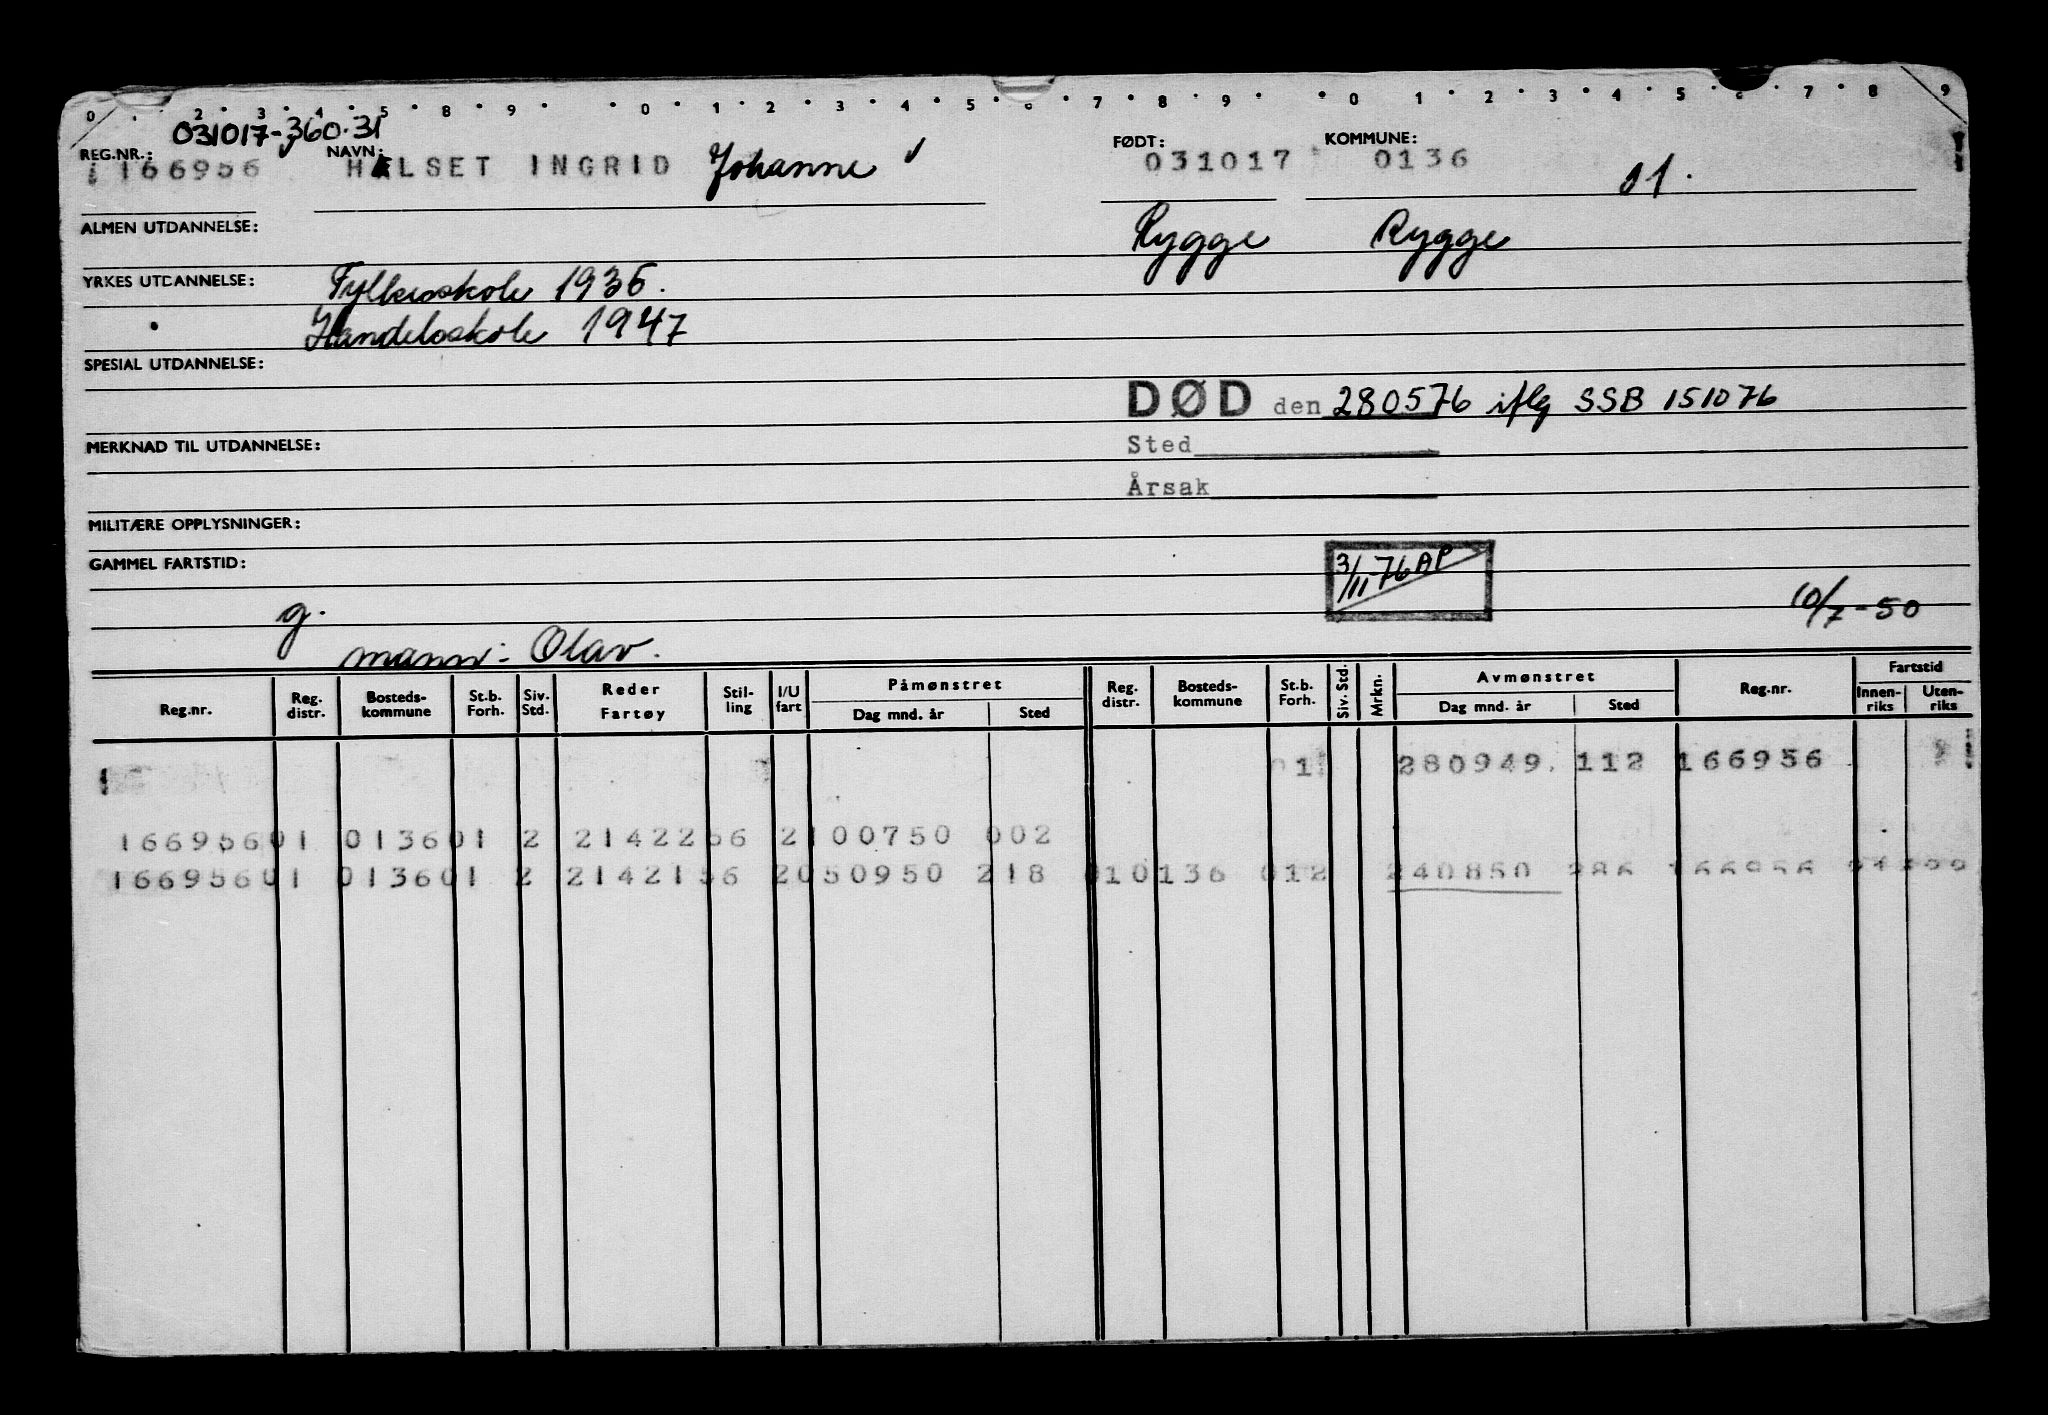 0 2 3 4 5 8 9 0 1 2 3 4 5 6 7 8 9 0 1 2 3 4 5 6 7 8 9
031017-360.31
REG.NR.: 166956 NAVN: HALSET INGRID Johanne FØDT: 031017 KOMMUNE: 0136
01.
ALMEN UTDANNELSE: Rygge Rygge
YRKES UTDANNELSE: Fylkesskole 1936.
Handelsskole 1947
SPESIAL UTDANNELSE:
DØD den 280576 iflg SSB 151076
MERKNAD TIL UTDANNELSE: Sted
Årsak
MILITÆRE OPPLYSNINGER:
GAMMEL FARTSTID: 3/11-76 AP
g. 10/7-50
mann: Olav.
Reg.nr. Reg. distr. Bosteds- kommune St.b. Forh. Siv. Std. Reder Fartøy Stil- ling I/U fart Påmønstret Dag mnd. år Sted Reg. distr. Bosteds- kommune St.b. Forh. Siv. Std. Mrkn. Avmønstret Dag mnd. år Sted Reg.nr. Fartstid Innen- riks Uten- riks
01 280949. 112 166956
16695601 013601 2 2142256 2100750 002
16695601 013601 2 2142156 2050950 218 010136 012 240850 286 166956